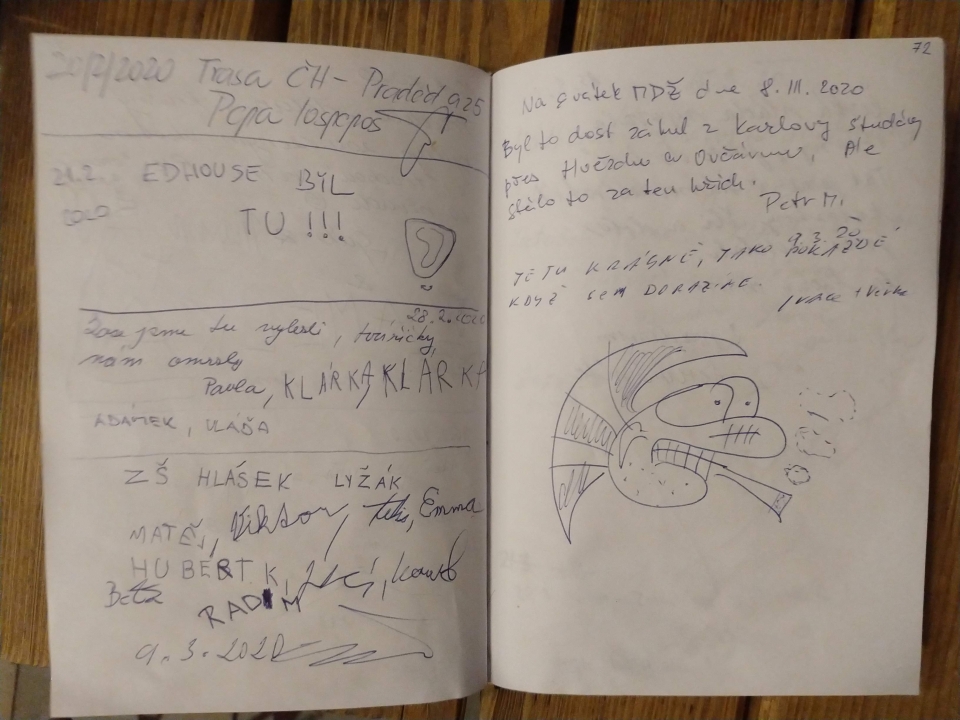 20/2/2020 Trasa ČH - Praděd a 25
Pepa lospepoš
21.2. EDHOUSE BYL
2020
TU !!!
28.2.2020
jsme tu vylezli, tvářičky
nám omrzly
Pavla, KLÁRKA, KLÁRKA
ADÁMEK, VLÁĎA
ZŠ HLÁSEK LYŽÁK
MATĚJ, Viktor, Emma
HUBERT K,
Běta
RADIM
9.3.2020
72
Na svátek MDŽ dne 8. III. 2020
Byl to dost záhul z Karlovy Studánky
přes Hvězdu a Ovčárnu. Ale
stálo to za ten hřích.
Petr M.
9.3.20
JE TU KRÁSNĚ, JAKO POKAŽDÉ
KDYŽ SEM DORAZÍME.